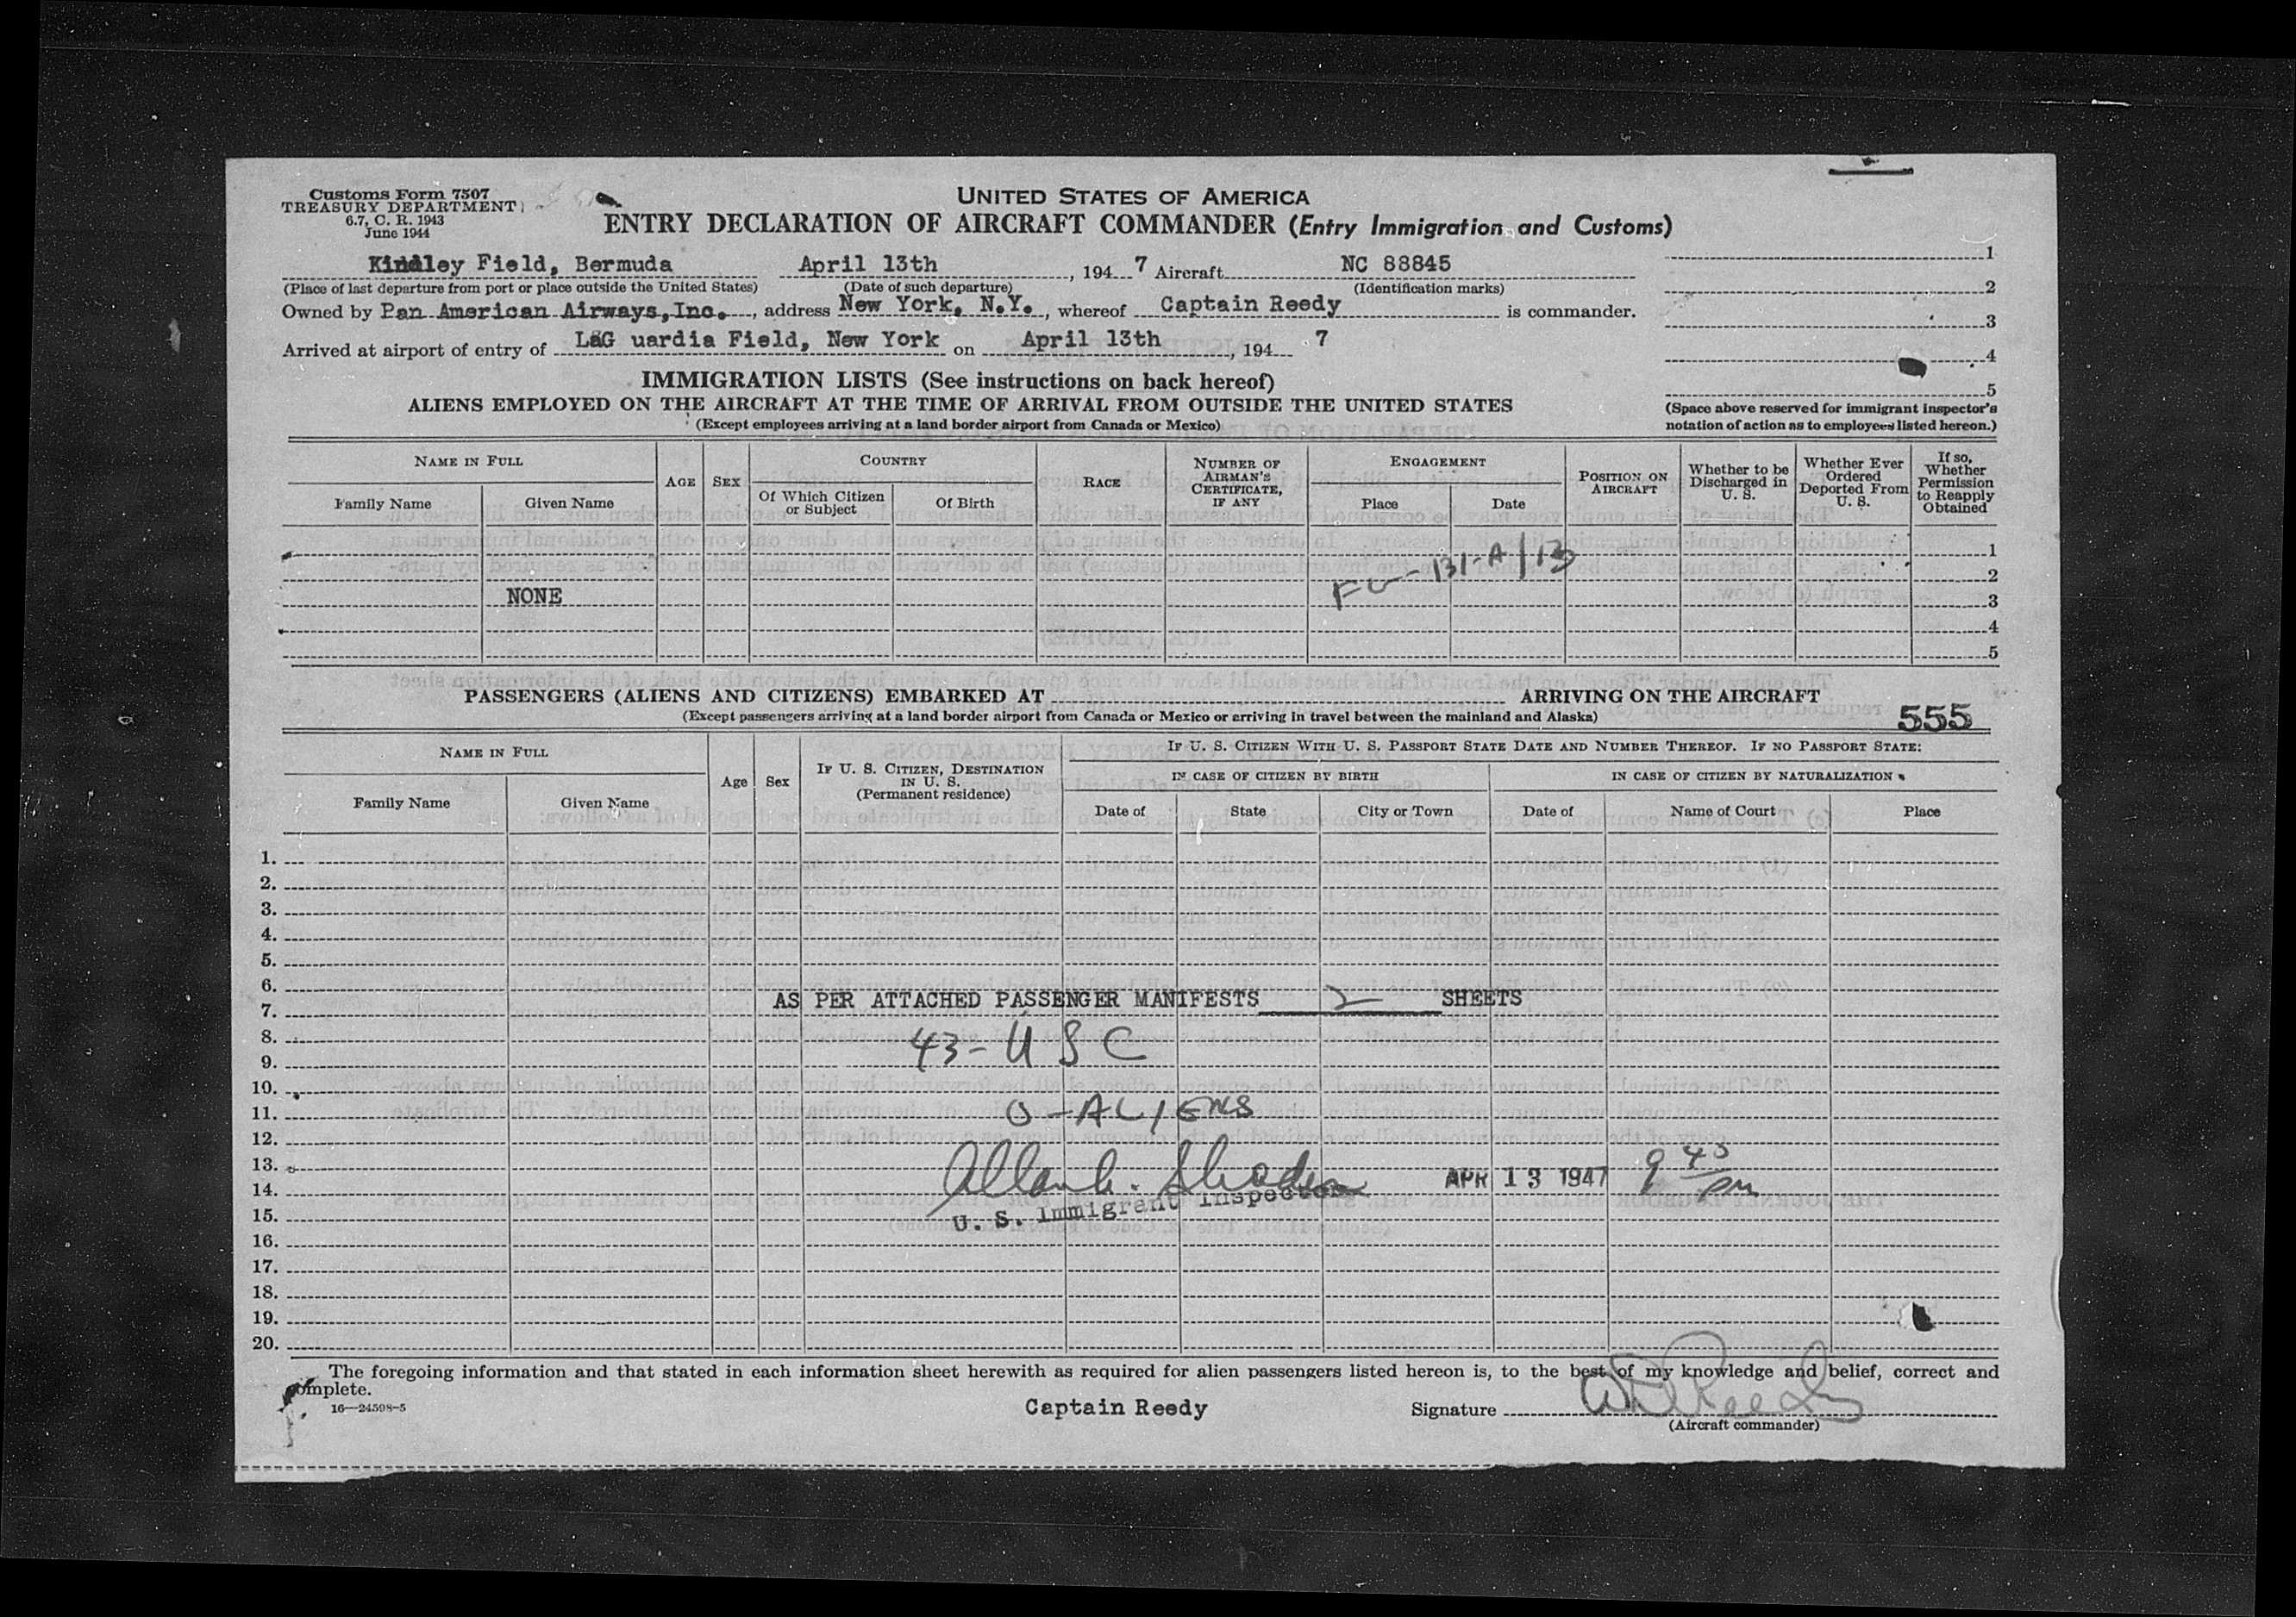 Customs Form 7507
TREASURY DEPARTMENT
6.7, C. R. 1943
June 1944
UNITED STATES OF AMERICA
ENTRY DECLARATION OF AIRCRAFT COMMANDER (Entry Immigration and Customs)
Kindley Field, Bermuda April 13th, 194 7 Aircraft NC 88845
(Place of last departure from port or place outside the United States) (Date of such departure) (Identification marks)
Owned by Pan American Airways, Inc., address New York, N.Y., whereof Captain Reedy is commander.
Arrived at airport of entry of LaG uardia Field, New York on April 13th, 194 7
1
2
3
4
5
(Space above reserved for immigrant inspector's
notation of action as to employees listed hereon.)
IMMIGRATION LISTS (See instructions on back hereof)
ALIENS EMPLOYED ON THE AIRCRAFT AT THE TIME OF ARRIVAL FROM OUTSIDE THE UNITED STATES
(Except employees arriving at a land border airport from Canada or Mexico)
NAME IN FULL
Family Name
Given Name
AGE
SEX
COUNTRY
Of Which Citizen
or Subject
Of Birth
RACE
NUMBER OF
AIRMAN'S
CERTIFICATE,
IF ANY
ENGAGEMENT
Place
Date
POSITION ON
AIRCRAFT
Whether to be
Discharged in
U. S.
Whether Ever
Ordered
Deported From
U. S.
If so,
Whether
Permission
to Reapply
Obtained
1
2
NONE 3
4
5
131-A/13
PASSENGERS (ALIENS AND CITIZENS) EMBARKED AT ARRIVING ON THE AIRCRAFT
(Except passengers arriving at a land border airport from Canada or Mexico or arriving in travel between the mainland and Alaska)
555
NAME IN FULL
Family Name
Given Name
Age
Sex
IF U. S. CITIZEN, DESTINATION
IN U. S.
(Permanent residence)
IF U. S. CITIZEN WITH U. S. PASSPORT STATE DATE AND NUMBER THEREOF. IF NO PASSPORT STATE:
IN CASE OF CITIZEN BY BIRTH
IN CASE OF CITIZEN BY NATURALIZATION
Date of
State
City or Town
Date of
Name of Court
Place
1.
2.
3.
4.
5.
6.
7. AS PER ATTACHED PASSENGER MANIFESTS 2 SHEETS
8. 43 - USC
9.
10.
11. 0 - ALIENS
12.
13.
14. APR 13 1947 9 45 pm
15. U. S. Immigrant Inspector
16.
17.
18.
19.
20.
The foregoing information and that stated in each information sheet herewith as required for alien passengers listed hereon is, to the best of my knowledge and belief, correct and
complete.
16—24598-5
Captain Reedy
Signature W Reedy
(Aircraft commander)